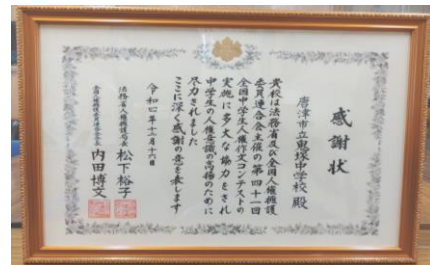 感謝状
唐津市立鬼塚中学校 殿
貴校は法務省及び全国人権擁護
委員連合会主催の第四十一回
全国中学生人権作文コンテストの
実施に多大な協力をされ
中学生の人権意識の高揚のために
尽力されました
ここに深く感謝の意を表します
令和四年十二月十六日
法務省人権擁護局長 松下裕子
全国人権擁護委員連合会会長 内田博文